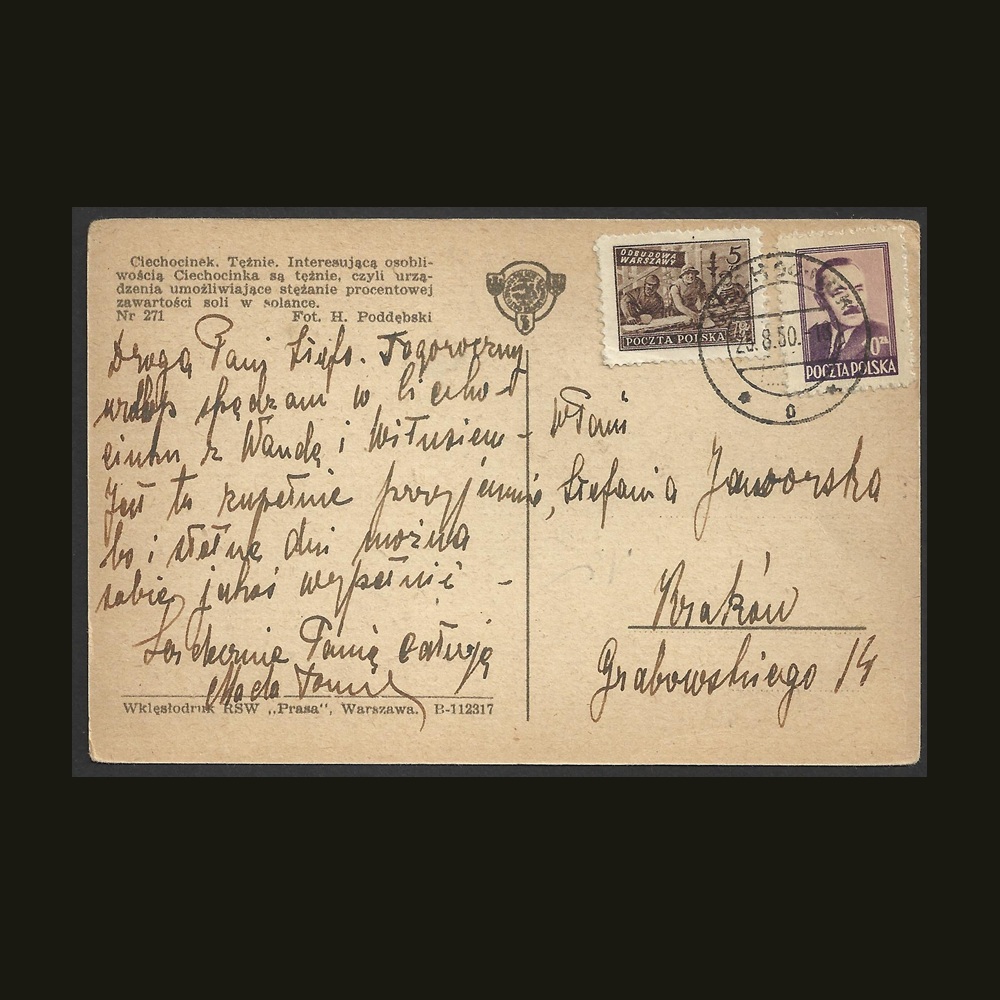 Ciechocinek. Tężnie. Interesującą osobli-
wością Ciechocinka są tężnie, czyli urzą-
dzenia umożliwiające stężanie procentowej
zawartości soli w solance.
Nr 271 Fot. H. Poddębski
Drogą Pani Stefo. Tegoroczny
urlop spędzam w Ciecho-
cinku z Wandą i Witusiem –
Jest tu zupełnie przyjemnie,
bo i słotne dni można
sobie jakoś wypełnić –
Serdecznie Panią całuję
Wklęsłodruk RSW „Prasa", Warszawa. B-112317
ODBUDOWA
WARSZAWY
5
POCZTA POLSKA
POCZTA POLSKA
8.50
WPani
Stefania Jaworska
Kraków
Grabowskiego 14